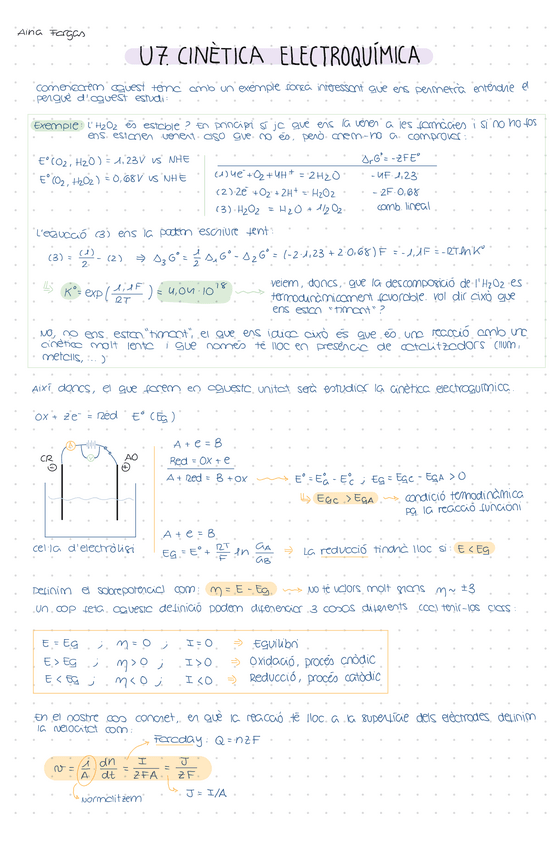 Aina Fargas
U7. CINÈTICA ELECTROQUÍMICA
començarem aquest tema amb un exemple força interessant que ens permetrà entendre el
perquè d'aquest estudi:
Exemple L'H₂O₂ és estable? En principi sí ja que ens la venen a les farmàcies i si no ho fos
ens estarien venent cosa que no és, però anem-ho a comprovar:
E°(O₂, H₂O) = 1.23V vs NHE
E°(O₂, H₂O₂) = 0.68V vs NHE
ΔᵣG° = -zFE°
(1) 4e⁻ + O₂ + 4H⁺ = 2H₂O -4F·1.23
(2) 2e⁻ + O₂ + 2H⁺ = H₂O₂ -2F·0.68
(3) H₂O₂ = H₂O + 1/2O₂ comb. lineal
L'equació (3) ens la podem escriure fent:
(3) = (1)/2 - (2) ⇒ Δ₃G° = 1/2 Δ₁G° - Δ₂G° = (-2·1,23 + 2·0,68)F = -1,1F = -RTlnK°
K° = exp(1,1F/RT) = 4,04·10¹⁸
veiem, doncs, que la descomposició de l'H₂O₂ és
termodinàmicament favorable. Vol dir això que
ens estan "timant"?
No, no ens estan "timant", el que ens indica això és que és una reacció amb una
cinètica molt lenta i que només té lloc en presència de catalitzadors (llum,
metalls, ...)
Així, doncs, el que farem en aquesta unitat serà estudiar la cinètica electroquímica.
Ox + ze⁻ = Red E° (Eq)
CR ⊖
AO ⊕
cel·la d'electròlisi
A + e = B
Red = Ox + e
A + Red = B + Ox → E° = E°a - E°c ; Eq = EqC - EqA > 0
EqC > EqA → condició termodinàmica
pq la reacció funcioni
A + e = B
Eq = E° + RT/F ln aA/aB ⇒ La reducció tindrà lloc si E < Eq
Definim el sobrepotencial com: η = E - Eq → No té valors molt grans η ~ ±3
Un cop feta aquesta definició podem diferenciar 3 casos diferents, cal tenir-los clars:
E = Eq ; η = 0 ; I = 0 ⇒ Equilibri
E > Eq ; η > 0 ; I > 0 ⇒ Oxidació, procés anòdic
E < Eq ; η < 0 ; I < 0 ⇒ Reducció, procés catòdic
En el nostre cas concret, en què la reacció té lloc a la superfície dels elèctrodes, definim
la velocitat com:
Faraday: Q = nzF
v = 1/A dn/dt = I/zFA = J/zF
Normalitzem
J = I/A